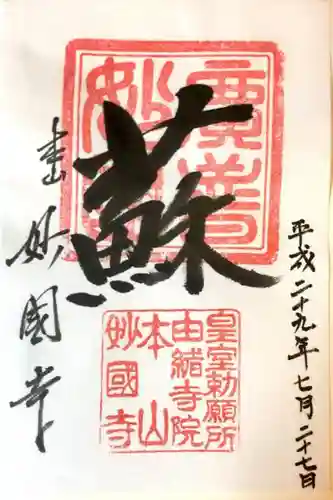 平成二十九年七月二十七日
蘇
廣普
妙國
皇室勅願所
由緒寺院
本山
妙國寺
本山
妙國寺